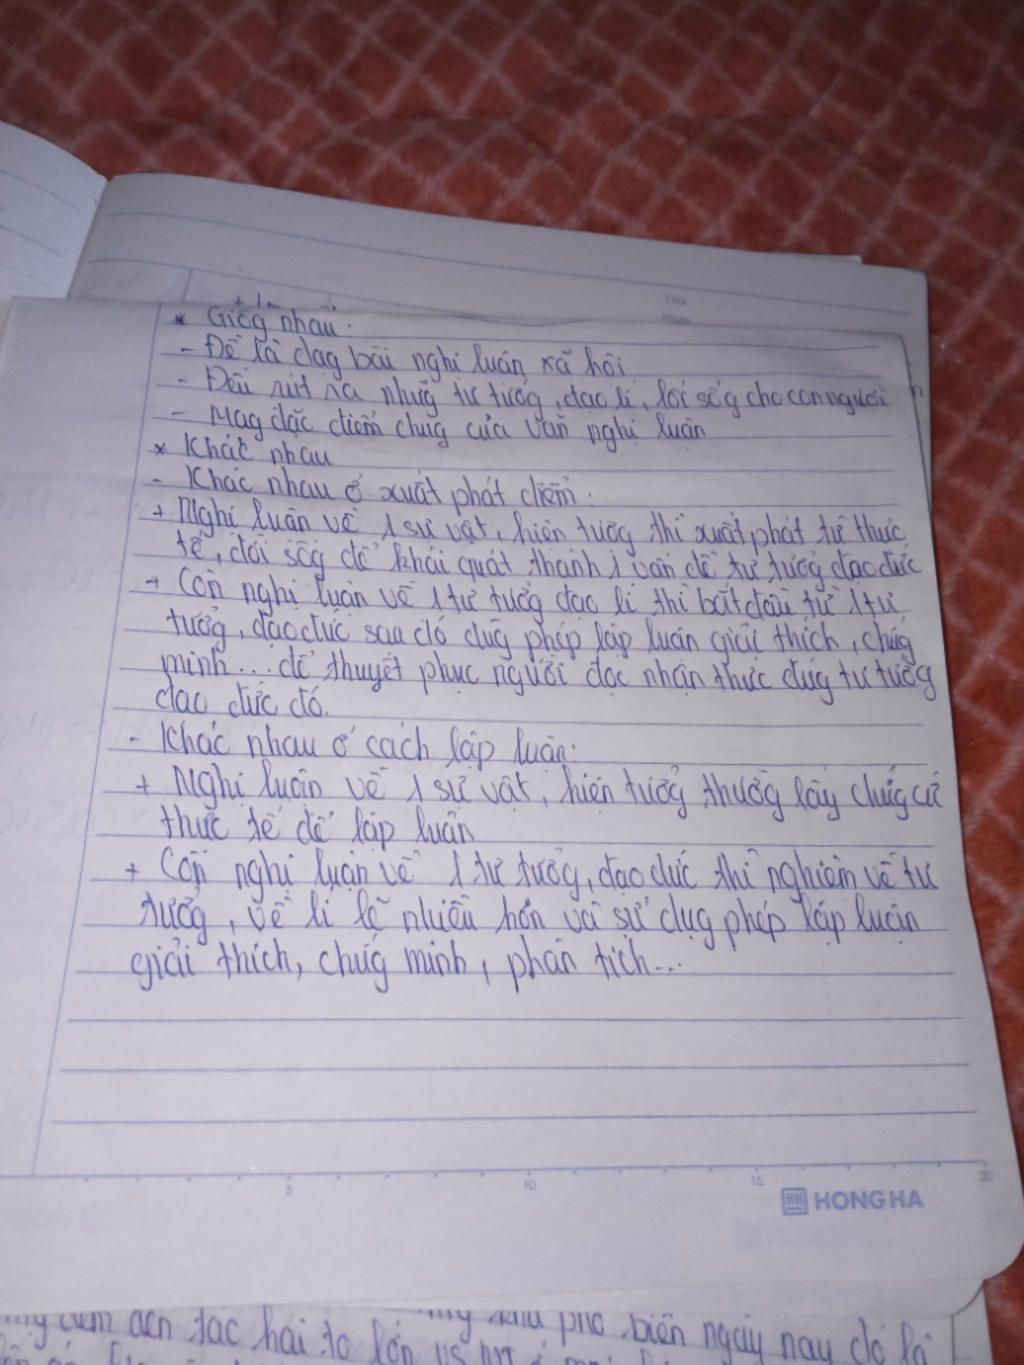 * Giốg nhau:
- Đề là dạg bài nghị luận xã hội
- Đều rút ra nhữg tư tưởg, đạo lí, lối sốg cho con người
- Mag đặc điểm chug của văn nghị luận
* Khác nhau
- Khác nhau ở xuất phát điểm:
+ Nghị luận về 1 sự vật, hiện tượg thì xuất phát từ thực
tế, đời sốg để khái quát thành 1 vấn đề tư tưởg đạo đức
+ Còn nghị luận về 1 tư tưởg đạo lí thì bắt đầu từ 1 tư
tưởg, đạo đức sau đó dùg phép lập luận giải thích, chứg
minh... để thuyết phục người đọc nhận thức đúg tư tưởg
đạo đức đó.
- Khác nhau ở cách lập luận:
+ Nghị luận về 1 sự vật, hiện tượg thườg lấy chứg cứ
thực tế để lập luận
+ Còn nghị luận về 1 tư tưởg, đạo đức thì nghiêm về tư
tưởg, về lí lẽ nhiều hơn và sử dụg phép lập luận
giải thích, chứg minh, phân tích...
5 10 15 20
HONG HA
đến tác hại to lớn
phổ biến ngày nay đó là